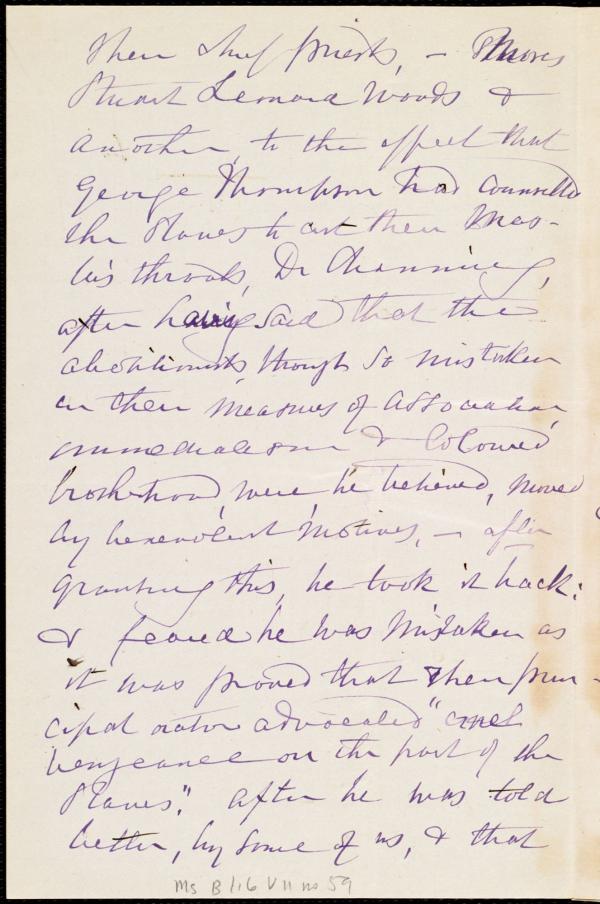 their chief priests, — Moses
Stuart Leonard Woods &
another, to the effect that
George Thompson had counselled
the slaves to cut their mas-
ters throats, Dr Channing,
after having said that the
abolitionists, though so mistaken
in their measures of association,
immediatism & Colored
brotherhood, were, he believed, moved
by benevolent motives, — after
granting this, he took it back:
& feared he was mistaken as
it was proved that their prin-
cipal orator advocated "cruel
vengeance on the part of the
slaves". After he was told
better, by some of us, & that
Ms B 1.6 V 11 no 59